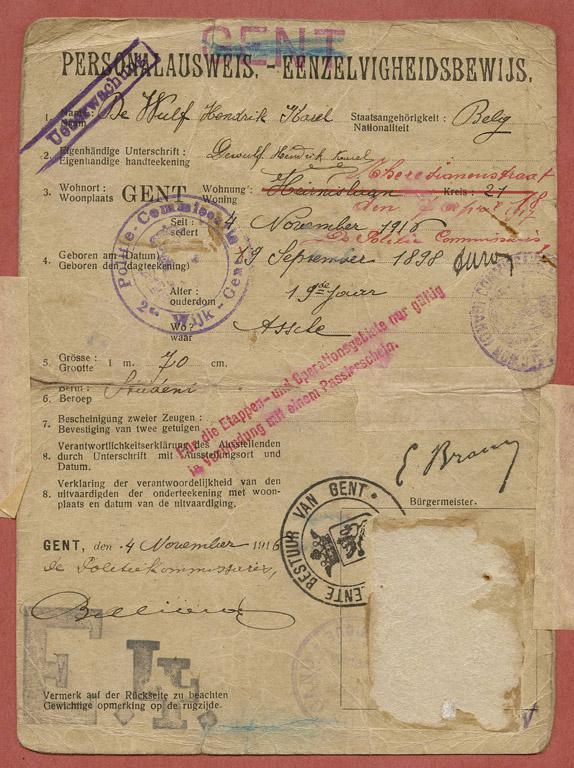 GENT
PERSONALAUSWEIS. - EENZELVIGHEIDSBEWIJS.
Ueberwachung
1. Name : De Wulf Hendrik Karel Staatsangehörigkeit : Belg
Naam Nationaliteit
2. Eigenhändige Unterschrift : Dewulf Hendrik Karel
Eigenhandige handteekening
Theresianenstraat
3. Wohnort : GENT Wohnung : Kreis : 21 18
Woonplaats Woning
Seit : 4 November 1916
sedert
De Politie Commissaris
4. Geboren am (Datum) 19 September 1898
Geboren den (dagteekening)
Alter : 19de jaar
ouderdom
Wo? Assche
waar
Politie-Commissaris
2de Wijk - Gent
5. Grösse : 1 m. 70 cm.
Grootte
Für die Etappen- und Operationsgebiete nur gültig
in Verbindung mit einem Passierschein.
6. Beruf : Student
Beroep
7. Bescheinigung zweier Zeugen :
Bevestiging van twee getuigen
8. Verantwortlichkeitserklärung des Ausstellenden
durch Unterschrift mit Ausstellungsort und
Datum.
8. Verklaring der verantwoordelijkheid van den
uitvaardigden der onderteekening met woon-
plaats en datum van de uitvaardiging.
E. Braun
Bürgermeister.
GEMEENTE BESTUUR VAN GENT
GENT, den 4 November 1916
de Politiekommissaris,
Vermerk auf der Rückseite zu beachten
Gewichtige opmerking op de rugzijde.